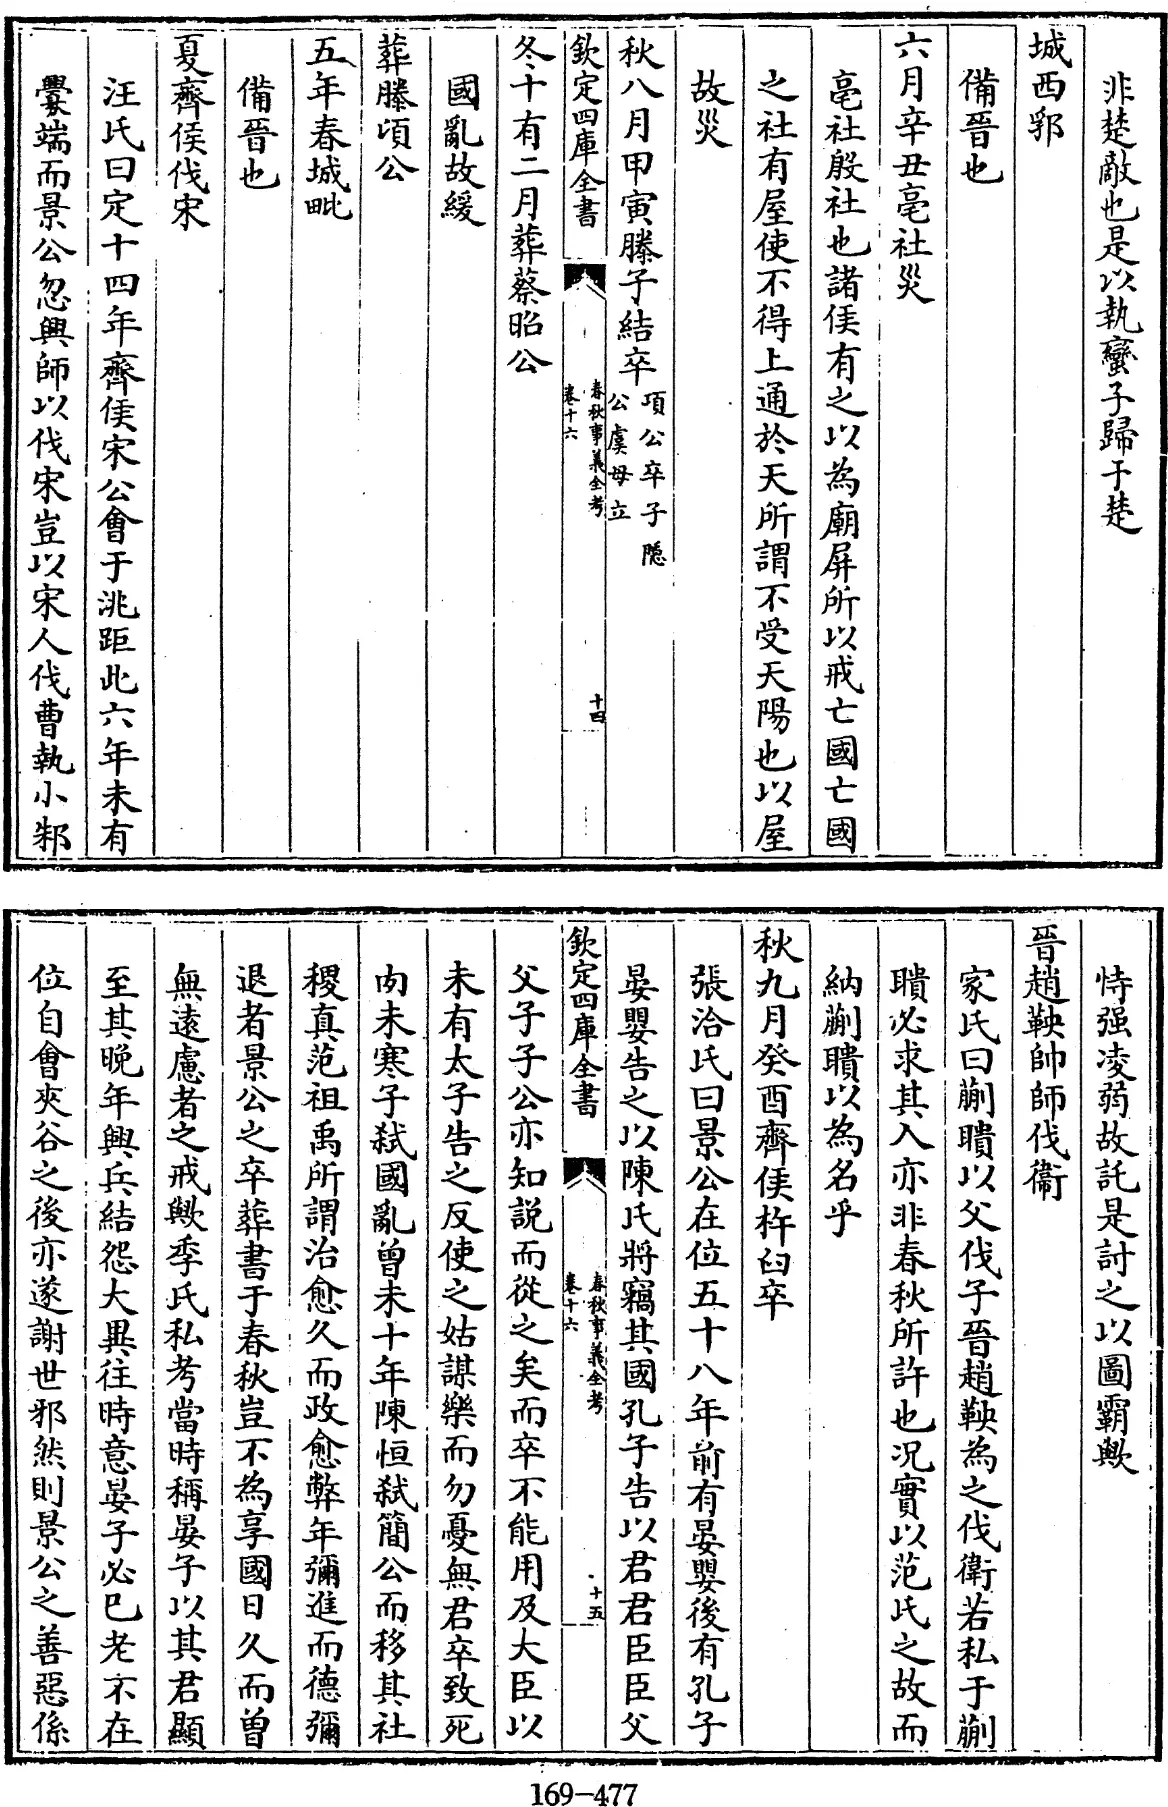 非楚敵也是以執蠻子歸于楚
城西郛
備晉也
六月辛丑亳社災
亳社殷社也諸侯有之以為廟屏所以戒亡國亡國
之社有屋使不得上通於天所謂不受天陽也以屋
故災
秋八月甲寅滕子結卒項公卒子隱公虞母立
欽定四庫全書
春秋事義全考
卷十六
十四
冬十有二月葬蔡昭公
國亂故緩
葬滕頃公
五年春城毗
備晉也
夏齊侯伐宋
汪氏曰定十四年齊侯宋公會于洮距此六年未有
釁端而景公忽興師以伐宋豈以宋人伐曹執小邾
恃强凌弱故託是討之以圖霸歟
晉趙鞅帥師伐衞
家氏曰蒯聵以父伐子晉趙鞅為之伐衛若私于蒯
聵必求其入亦非春秋所許也况實以范氏之故而
納蒯聵以為名乎
秋九月癸酉齊侯杵臼卒
張洽氏曰景公在位五十八年前有晏嬰後有孔子
晏嬰告之以陳氏將竊其國孔子告以君君臣臣父
欽定四庫全書
春秋事義全考
卷十六
十五
父子子公亦知説而從之矣而卒不能用及大臣以
未有太子告之反使之姑謀樂而勿憂無君卒致死
肉未寒子弑國亂曾未十年陳恒弑簡公而移其社
稷真范祖禹所謂治愈久而政愈弊年彌進而德彌
退者景公之卒葬書于春秋豈不為享國日久而曽
無遠慮者之戒歟季氏私考當時稱晏子以其君顯
至其晚年興兵結怨大異往時意晏子必已老不在
位自會夾谷之後亦遂謝世邪然則景公之善惡係
169-477